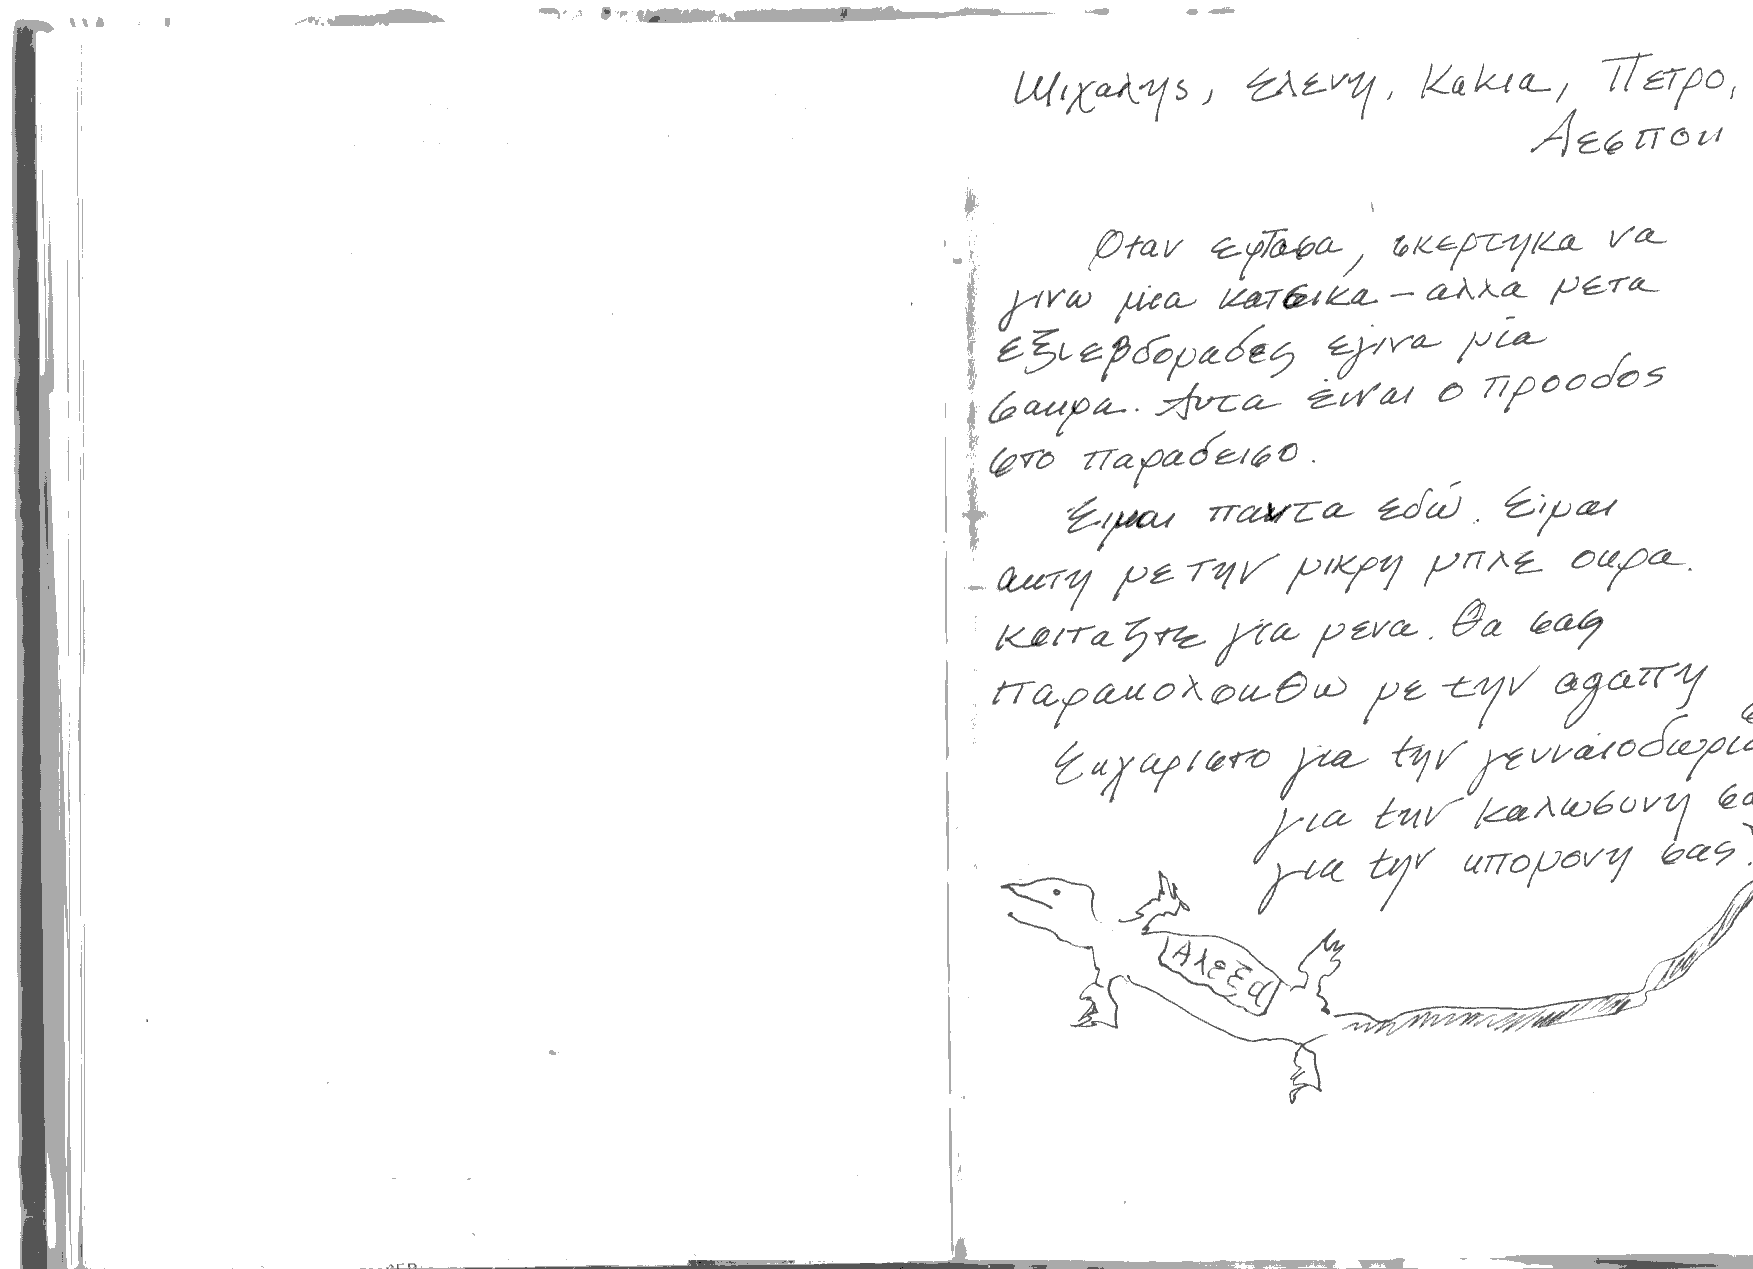 Μιχαλης, Ελενη, Κακια, Πετρο,
Δεσποu
Οταν εφτασα, σκερτηκα να
γινω μία κατσικα – αλλα μετα
εξι εβδομαδες εγινα μία
σαuρα. Αυτα είναι ο προοδος
στο παραδεισο.
Ειμαι παντα εδώ. Είμαι
αuτη με την μικρη μπλε ουρα.
Κοιταξτε για μενα. Θα σας
παρακολουθω με την αγαπη
Ευχαριστο για την γενναιοδωρια
για την καλωσυνη
για την υπομονη σας.
Αλεξα